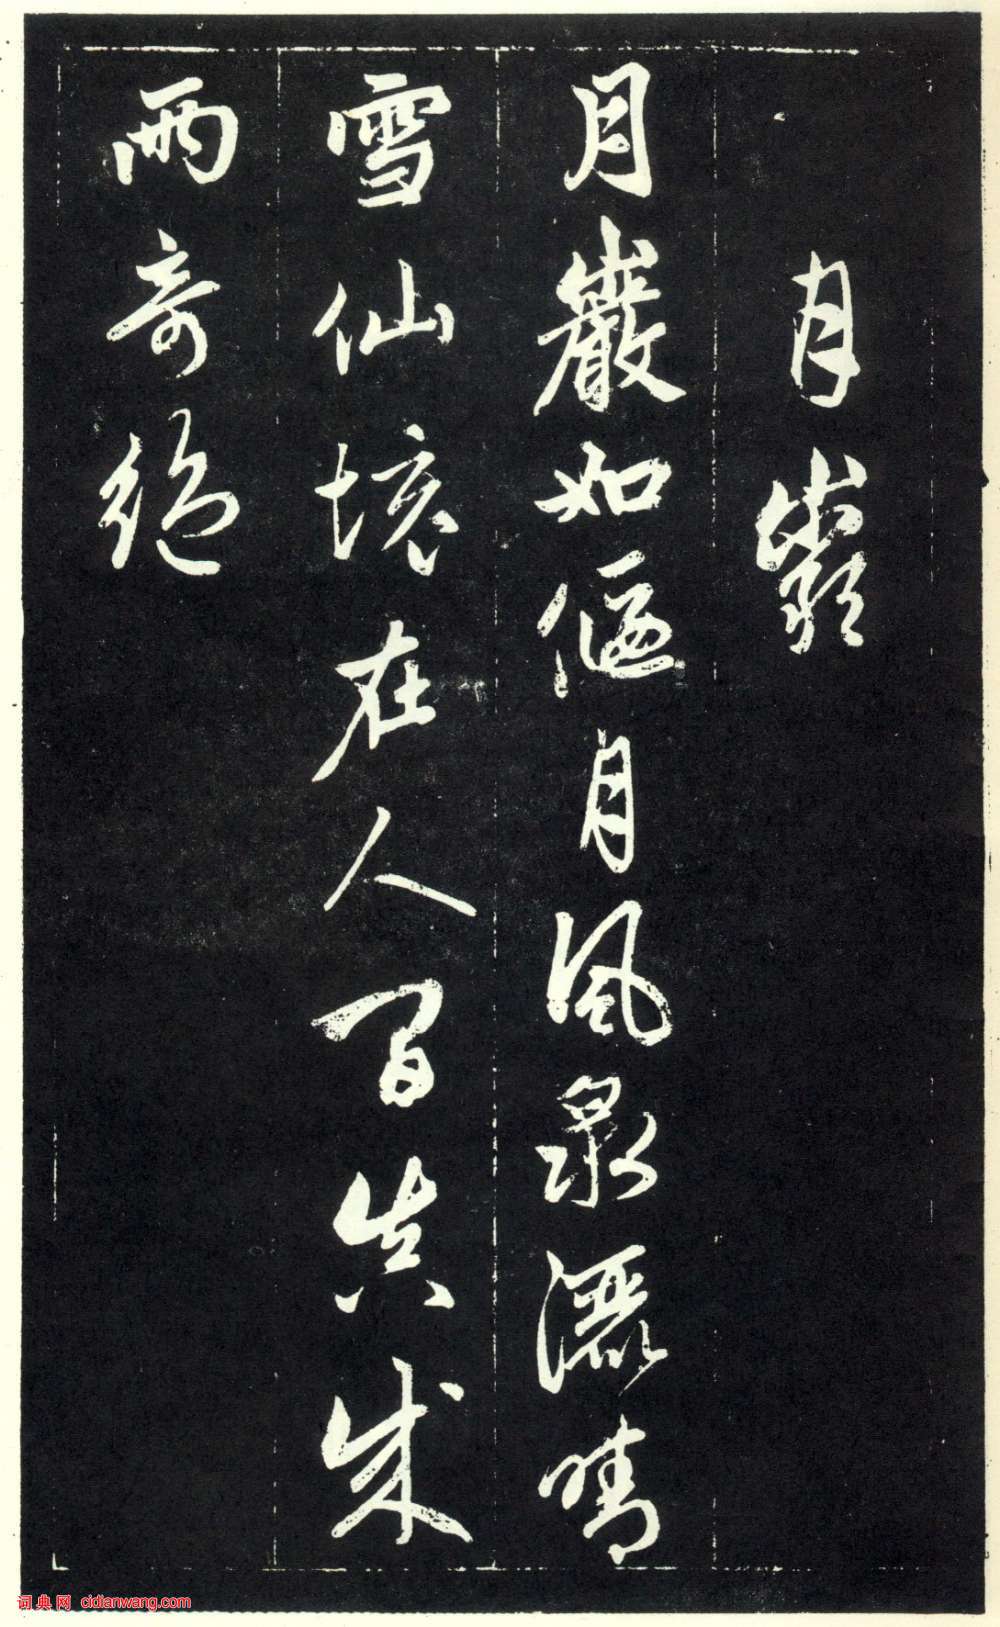 月巖
月巖如偃月風泉灑晴
雪仙境在人間真成
兩奇絕
词典网 cidianwang.com